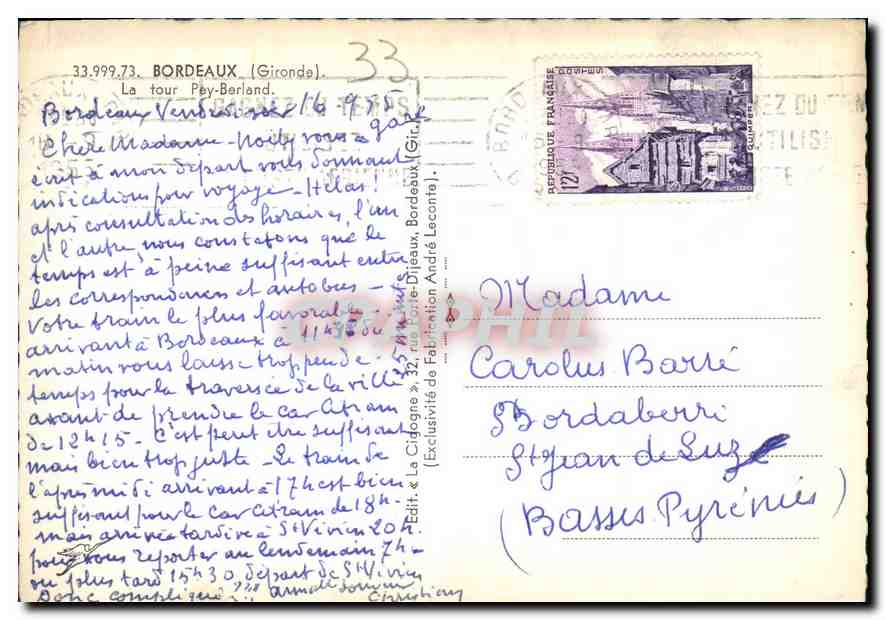 33
33.999.73. BORDEAUX (Gironde).
La tour Pey-Berland.
Bordeaux Vendredi 16-9-55
gare
Chère Madame - Noëly vous a
écrit à mon départ vous donnant
indications pour voyage - Hélas!
après consultation des horaires, l'un
et l'autre, nous constatons que le
temps est à peine suffisant entre
les correspondances et autobus -
Votre train le plus favorable
arrivant à Bordeaux à 11h35 du
matin vous laisse trop peu de
temps pour la traversée de la ville
avant de prendre le car Citram
de 12h15 - C'est peut être suffisant
mais bien trop juste - Le train de
l'après midi arrivant à 17h est bien
suffisant pour le car Citram de 18h -
mais arrivée tardive à St Vivien 20h.
pour vous reporter au lendemain 7h -
ou plus tard 15h30 départ de St Vivien
Donc compliqué !!!
Christiany
Edit. « La Cigogne », 32, rue Porte-Dijeaux, Bordeaux (Gir.)
(Exclusivité de Fabrication André Leconte).
REPUBLIQUE FRANÇAISE
POSTES
12F
QUIMPER
Madame
Carolus Barré
Bordaberri
St Jean de Luz
(Basses Pyrénées)